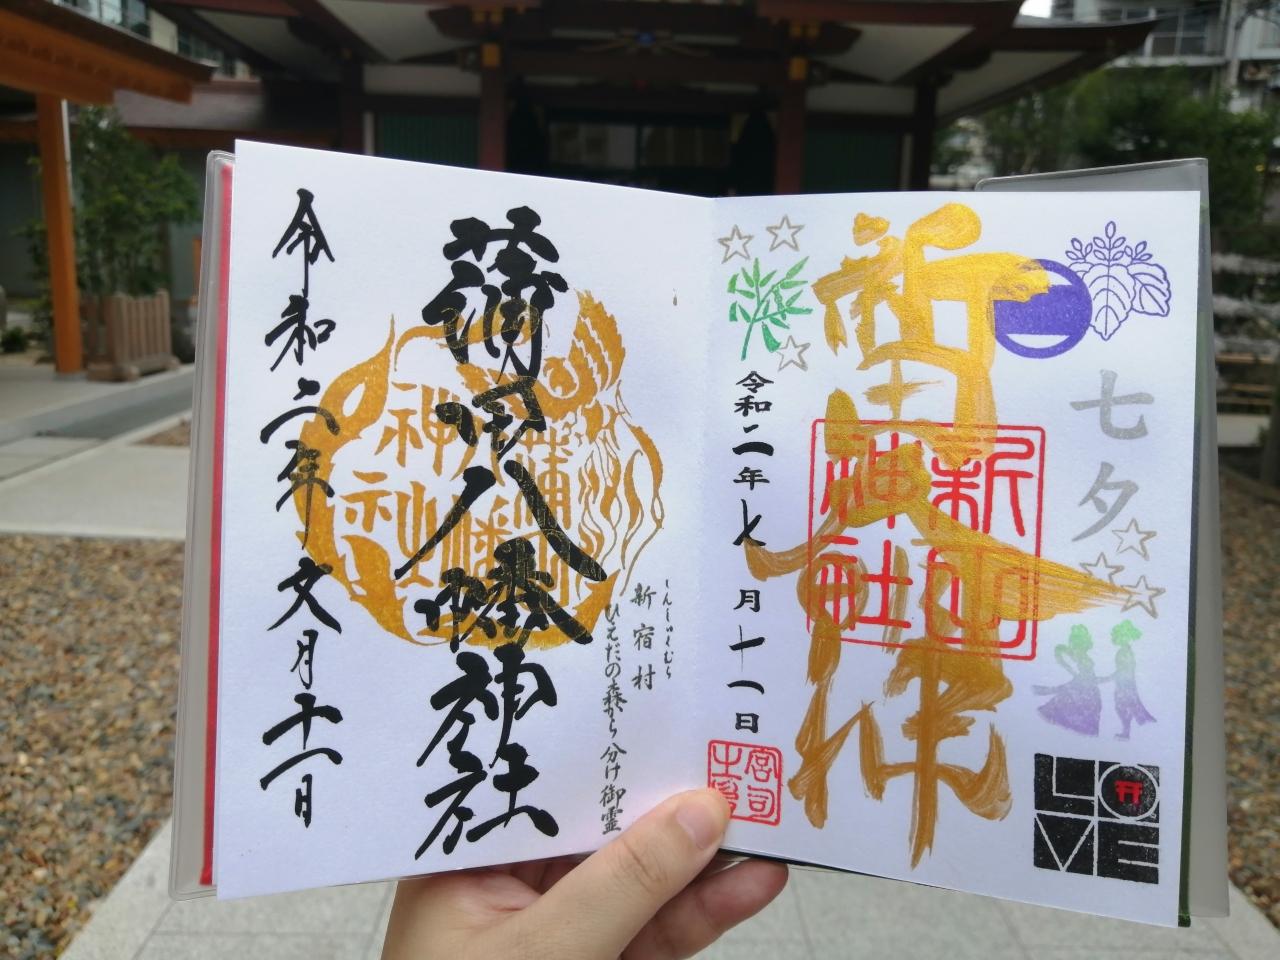 七夕
LOVE
新田大神
新田
神社
令和二年七月十一日
宮司
しんしゅくむら
新宿村
ひえだの森ゟ分け御霊
蒲田八幡神社
蒲田
八幡
神社
令和二年文月十一日